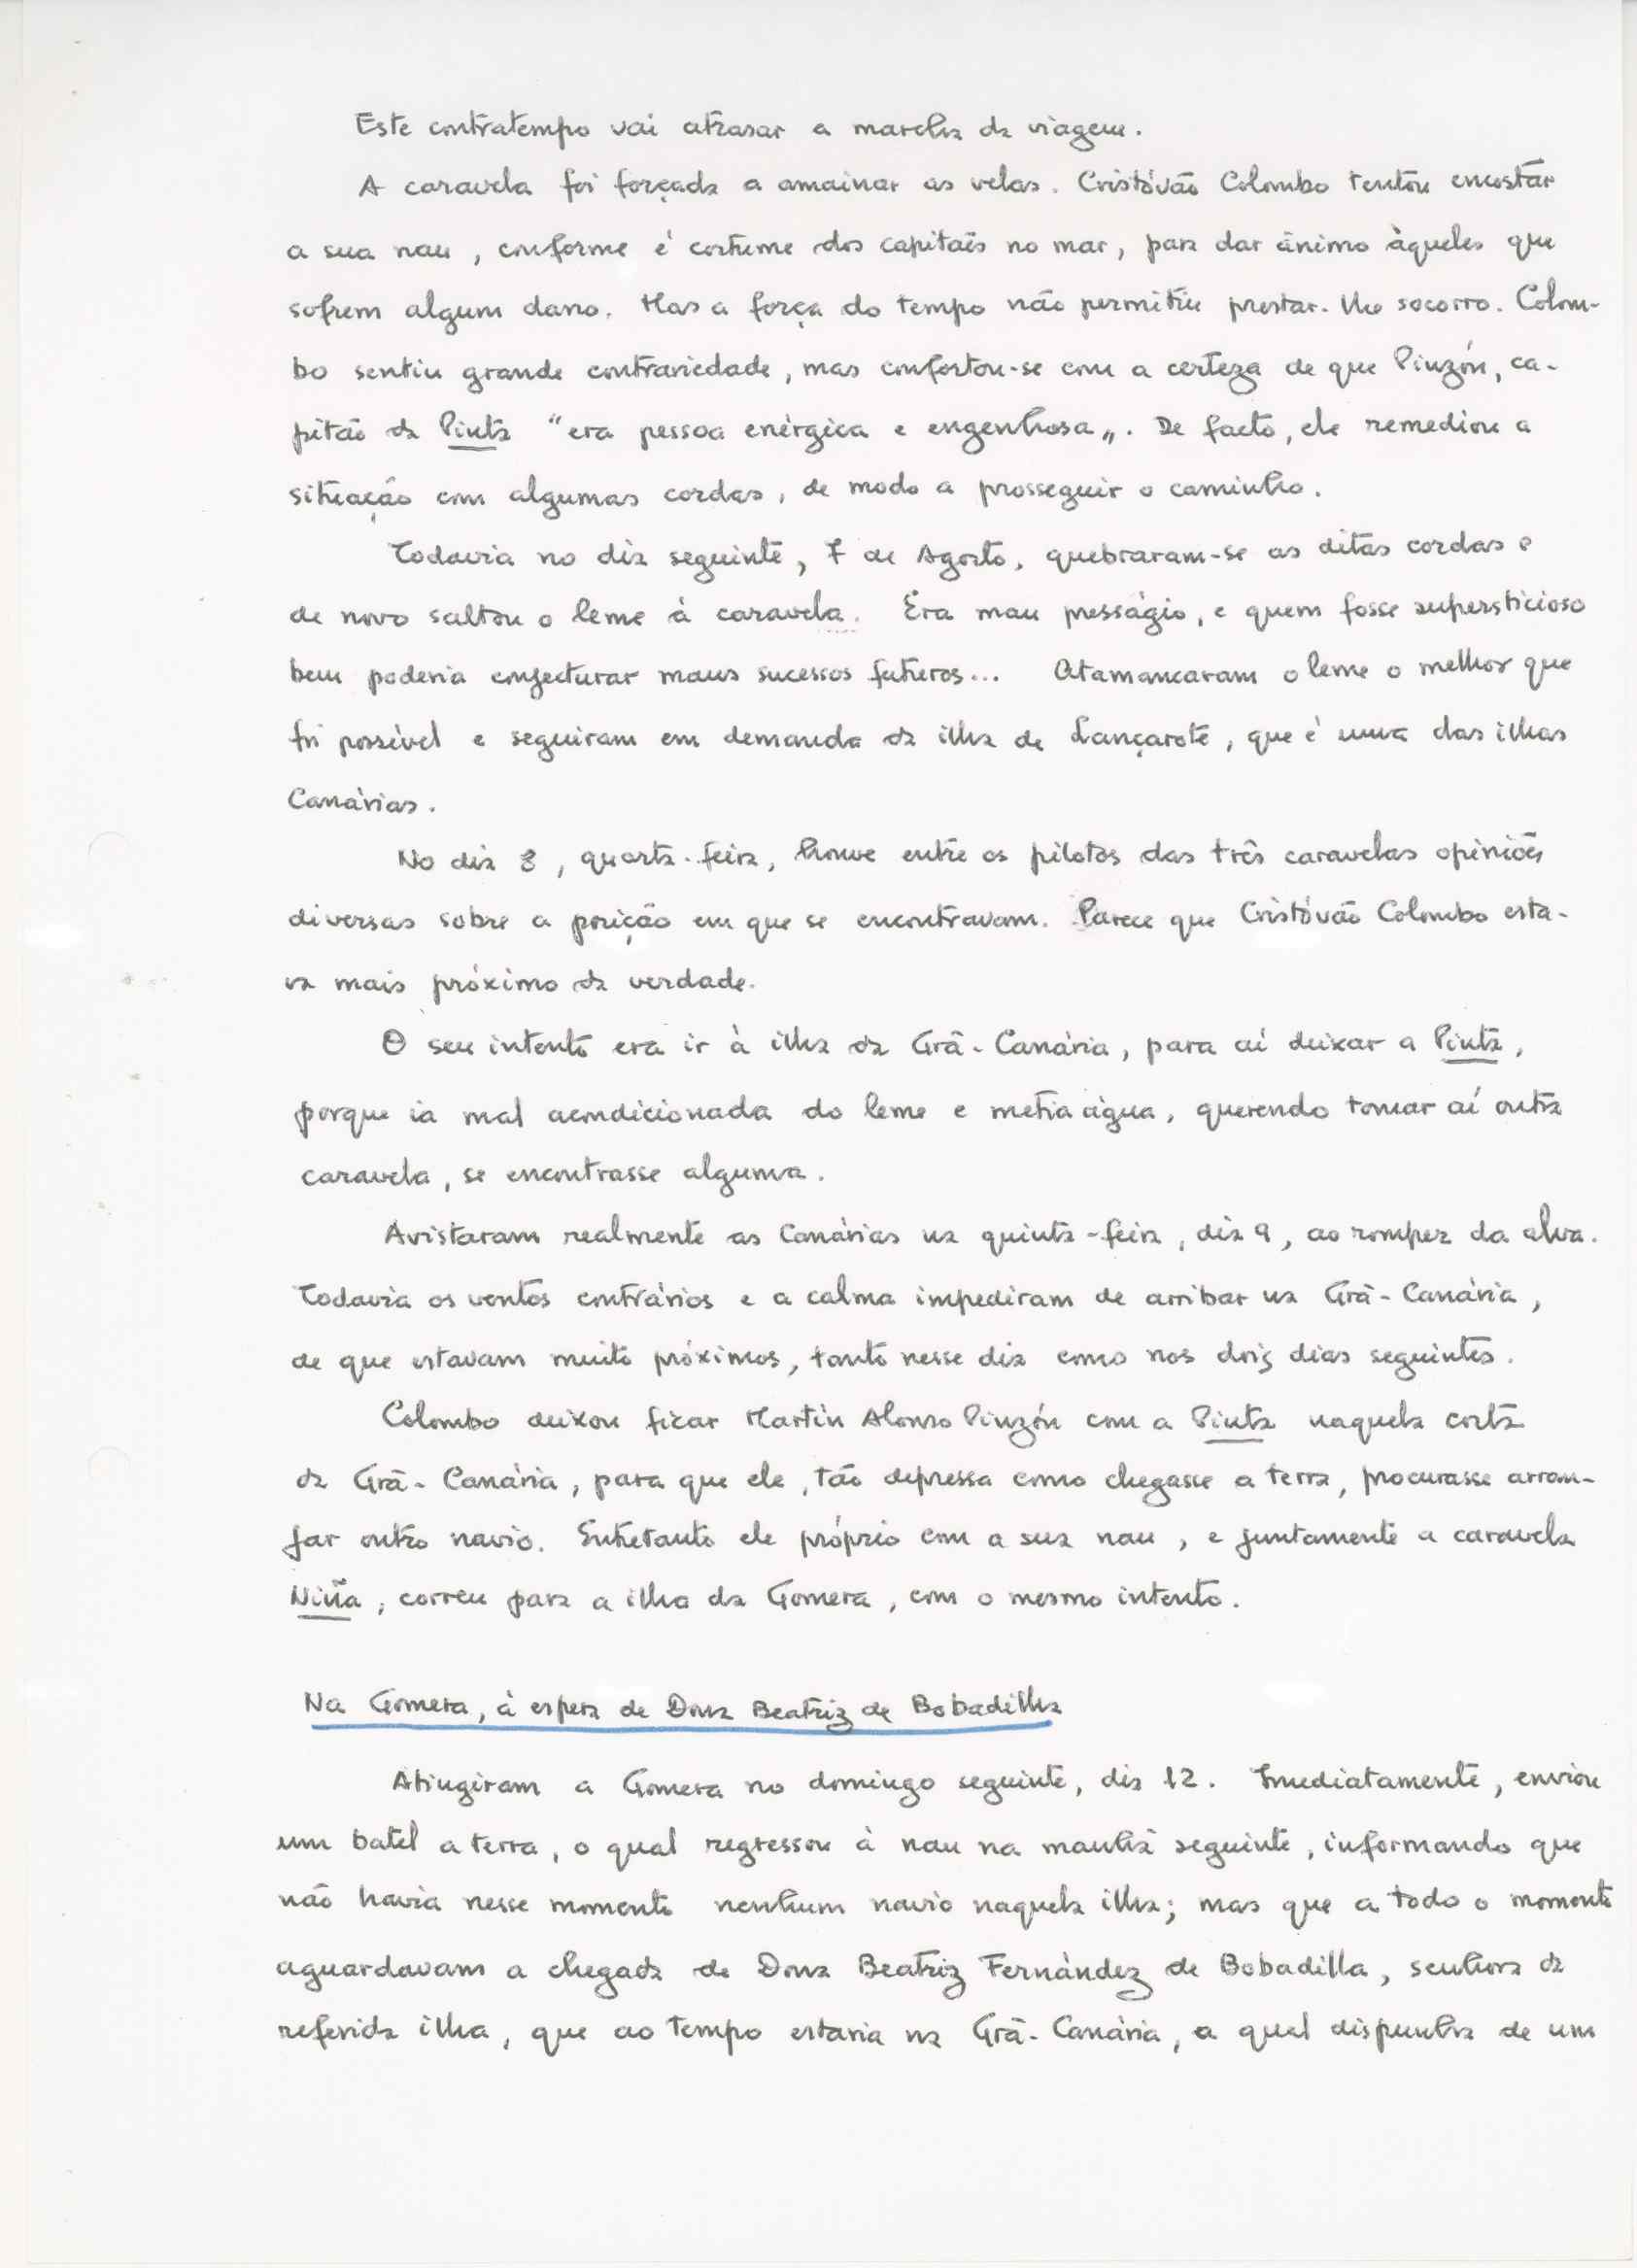 Este contratempo vai atrasar a marcha da viagem.
A caravela foi forçada a amainar as velas. Cristóvão Colombo tentou encostar
a sua nau, conforme é costume dos capitães no mar, para dar ânimo àqueles que
sofrem algum dano. Mas a força do tempo não permitiu prestar-lhe socorro. Colom-
bo sentiu grande contrariedade, mas confortou-se com a certeza de que Pinzón, ca-
pitão da Pinta "era pessoa enérgica e engenhosa". De facto, ele remediou a
situação com algumas cordas, de modo a prosseguir o caminho.
Todavia no dia seguinte, 7 de Agosto, quebraram-se as ditas cordas e
de novo saltou o leme à caravela. Era mau presságio, e quem fosse supersticioso
bem poderia conjecturar maus sucessos futuros... Atamancaram o leme o melhor que
foi possível e seguiram em demanda da ilha de Lançarote, que é uma das ilhas
Canárias.
No dia 8, quarta-feira, houve entre os pilotos das três caravelas opiniões
diversas sobre a posição em que se encontravam. Parece que Cristóvão Colombo esta-
va mais próximo da verdade.
O seu intento era ir à ilha da Grã-Canária, para aí deixar a Pinta,
porque ia mal acondicionada do leme e metia água, querendo tomar aí outra
caravela, se encontrasse alguma.
Avistaram realmente as Canárias na quinta-feira, dia 9, ao romper da alva.
Todavia os ventos contrários e a calma impediram de arribar na Grã-Canária,
de que estavam muito próximos, tanto nesse dia como nos dois dias seguintes.
Colombo deixou ficar Martín Alonso Pinzón com a Pinta naquela costa
da Grã-Canária, para que ele, tão depressa como chegasse a terra, procurasse arran-
jar outro navio. Entretanto ele próprio com a sua nau, e juntamente a caravela
Niña, correu para a ilha da Gomera, com o mesmo intento.
Na Gomera, à espera de Dona Beatriz de Bobadilha
Atingiram a Gomera no domingo seguinte, dia 12. Imediatamente, enviou
um batel a terra, o qual regressou à nau na manhã seguinte, informando que
não havia nesse momento nenhum navio naquela ilha; mas que a todo o momento
aguardavam a chegada de Dona Beatriz Fernández de Bobadilla, senhora da
referida ilha, que ao tempo estaria na Grã-Canária, a qual dispunha de um